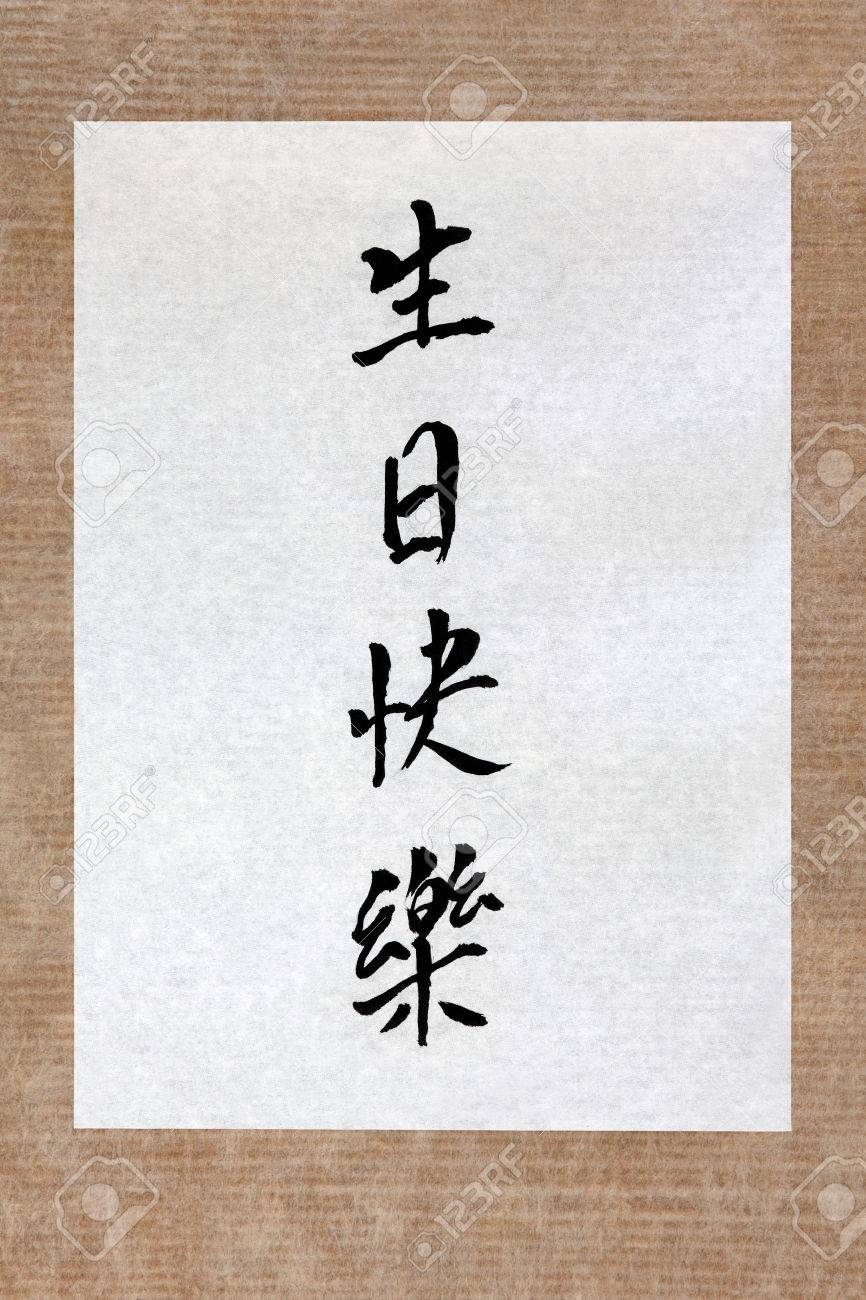 生日快樂
123RF